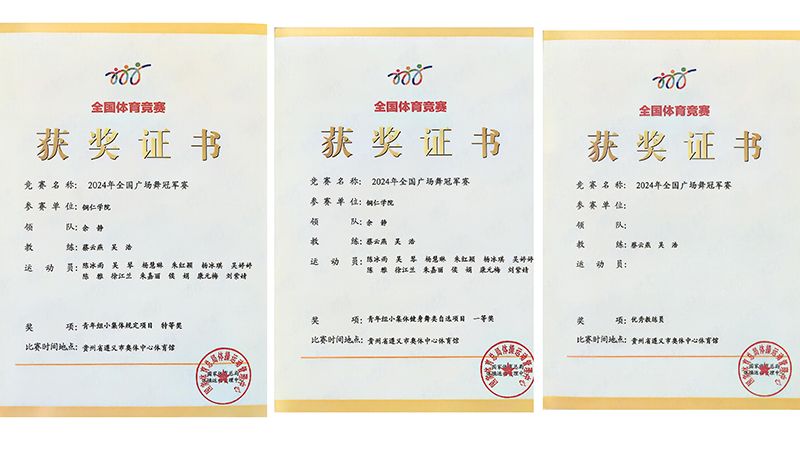 全国体育竞赛
获奖证书
竞赛名称: 2024年全国广场舞冠军赛
参赛单位: 铜仁学院
领队: 余静
教练: 蔡云燕 吴浩
运动员: 陈冰雨 吴琴 杨慧琳 朱红颖 杨冰琪 吴婷婷
陈雅 徐江兰 朱嘉丽 侯娟 康元梅 刘紫婧
奖项: 青年组小集体规定项目 特等奖
比赛时间地点: 贵州省遵义市奥体中心体育馆
全国体育竞赛
获奖证书
竞赛名称: 2024年全国广场舞冠军赛
参赛单位: 铜仁学院
领队: 余静
教练: 蔡云燕 吴浩
运动员: 陈冰雨 吴琴 杨慧琳 朱红颖 杨冰琪 吴婷婷
陈雅 徐江兰 朱嘉丽 侯娟 康元梅 刘紫婧
奖项: 青年组小集体健身舞类自选项目 一等奖
比赛时间地点: 贵州省遵义市奥体中心体育馆
全国体育竞赛
获奖证书
竞赛名称: 2024年全国广场舞冠军赛
参赛单位:
领队:
教练: 蔡云燕 吴浩
运动员:
奖项: 优秀教练员
比赛时间地点: 贵州省遵义市奥体中心体育馆